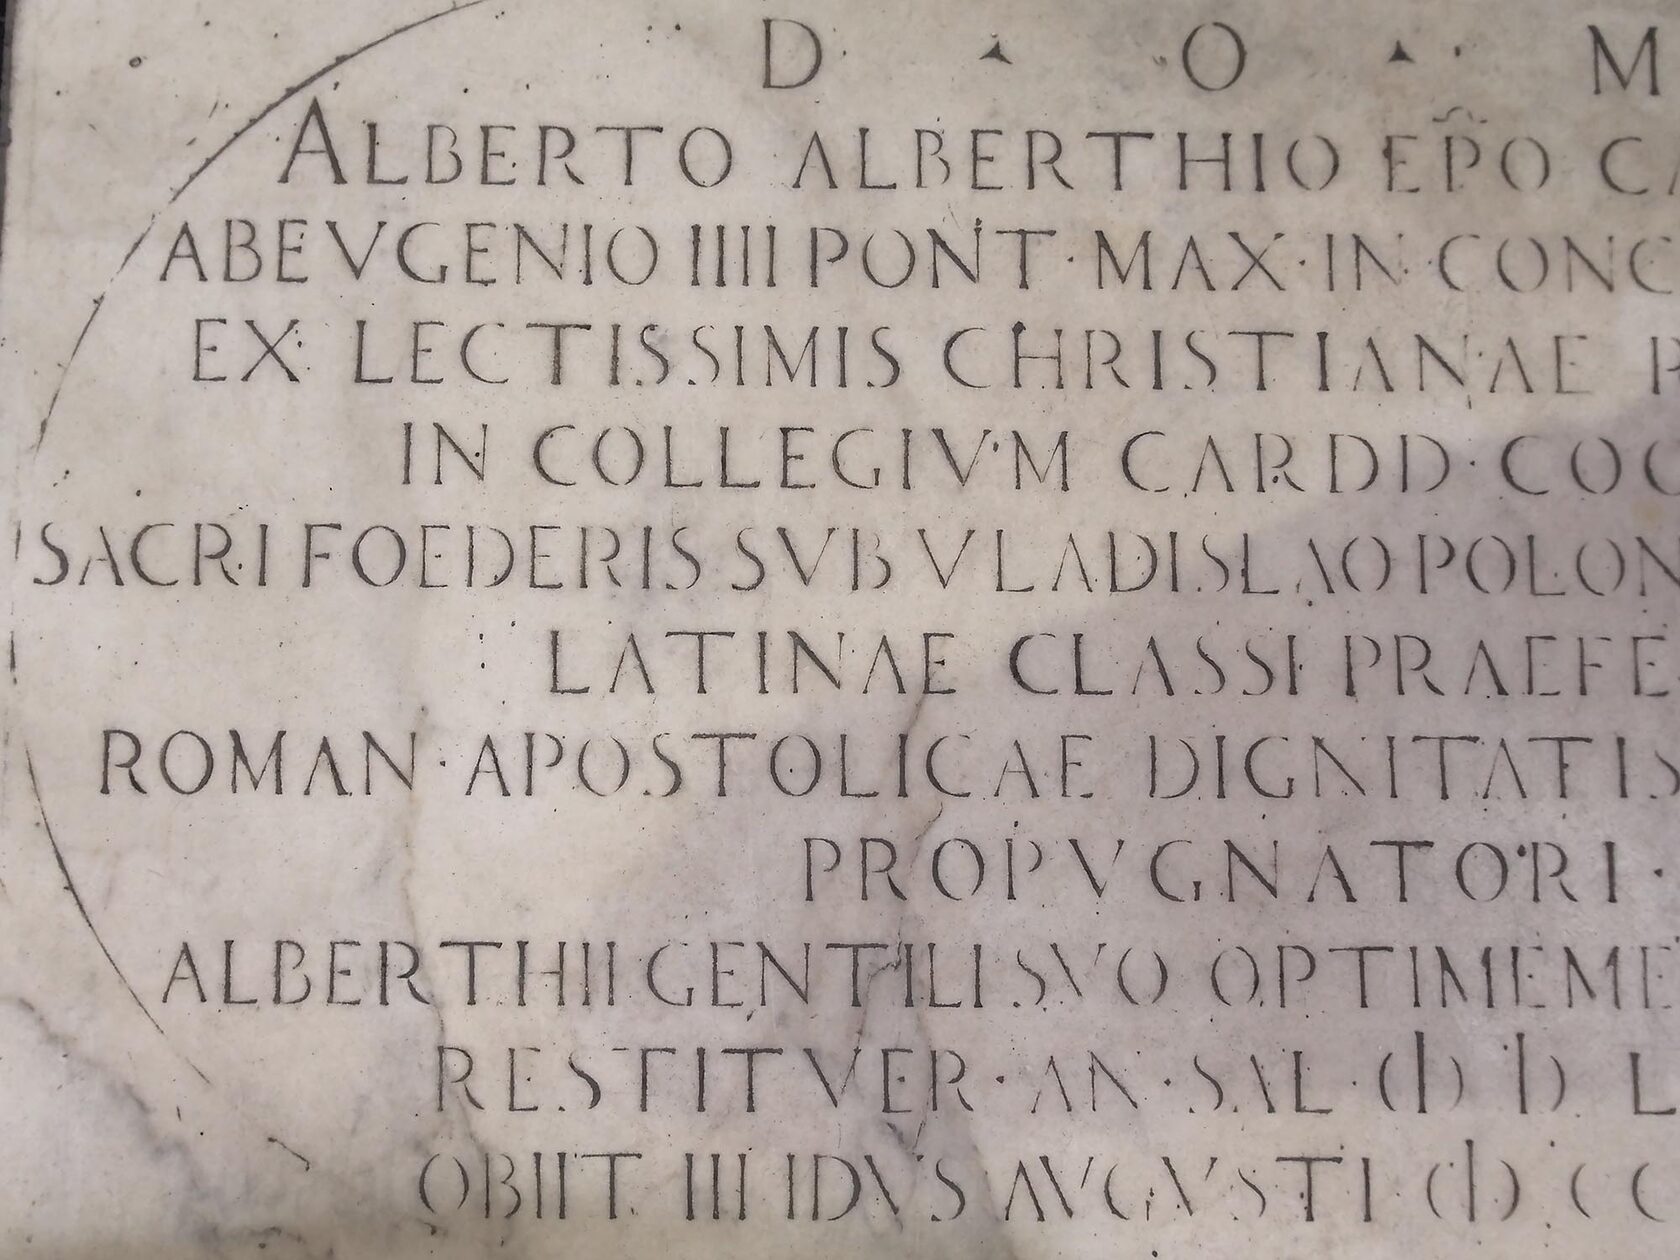 D · O · M
ALBERTO ALBERTHIO EPO
ABEVGENIO IIII PONT · MAX · IN CONC
EX LECTISSIMIS CHRISTIANAE
IN COLLEGIVM CARDD · COO
SACRI FOEDERIS SVB VLADISLAO POLON
LATINAE CLASSI PRAEFE
ROMAN · APOSTOLICAE DIGNITATIS
PROPVGNATORI ·
ALBERTHII GENTILI SVO OPTIMEME
RESTITVER · AN · SAL · CIↃ IↃ L
OBIIT IIII IDVS AVGVSTI CIↃ CC